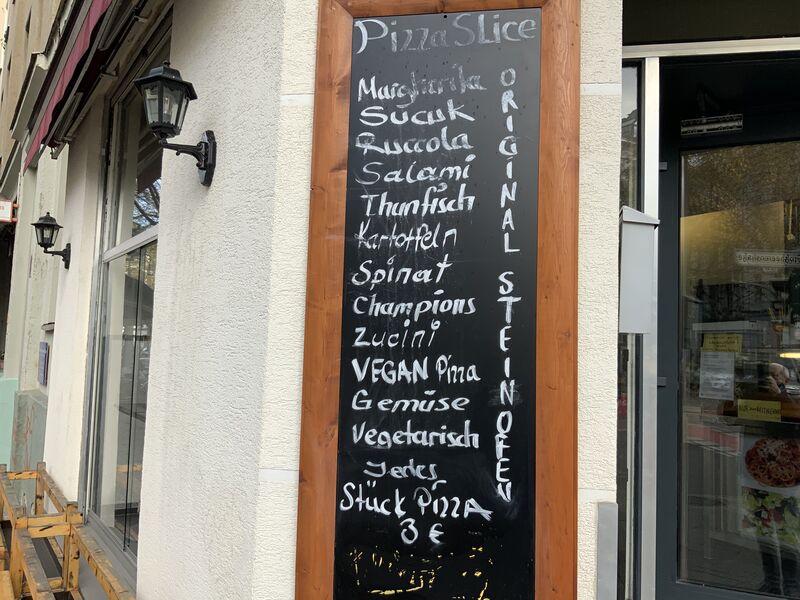 Pizza SLice
Margharita
Sucuk
Ruccola
Salami
Thunfisch
Kartoffeln
Spinat
Champions
Zucini
VEGAN Pizza
Gemüse
Vegetarisch
Jedes
Stück Pizza
3 €
ORIGINAL STEINOFEN